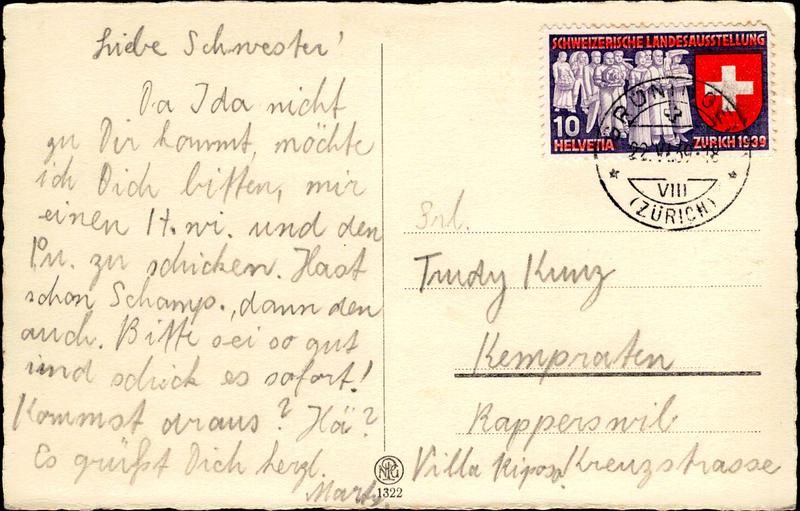 Liebe Schwester!
Da Ida nicht
zu Dir kommt, möchte
ich Dich bitten, mir
einen H. wi. und den
Pu. zu schicken. Hast
schon Schamp., dann den
auch. Bitte sei so gut
und schick es sofort!
Kommst draus? Hä?
Es grüßt Dich herzl.
SCHWEIZERISCHE LANDESAUSSTELLUNG
10
HELVETIA
ZURICH 1939
VIII
(ZÜRICH)
Frl.
Trudy Kunz
Kempraten
Rapperswil
Villa Riposo Kreuzstrasse
1322